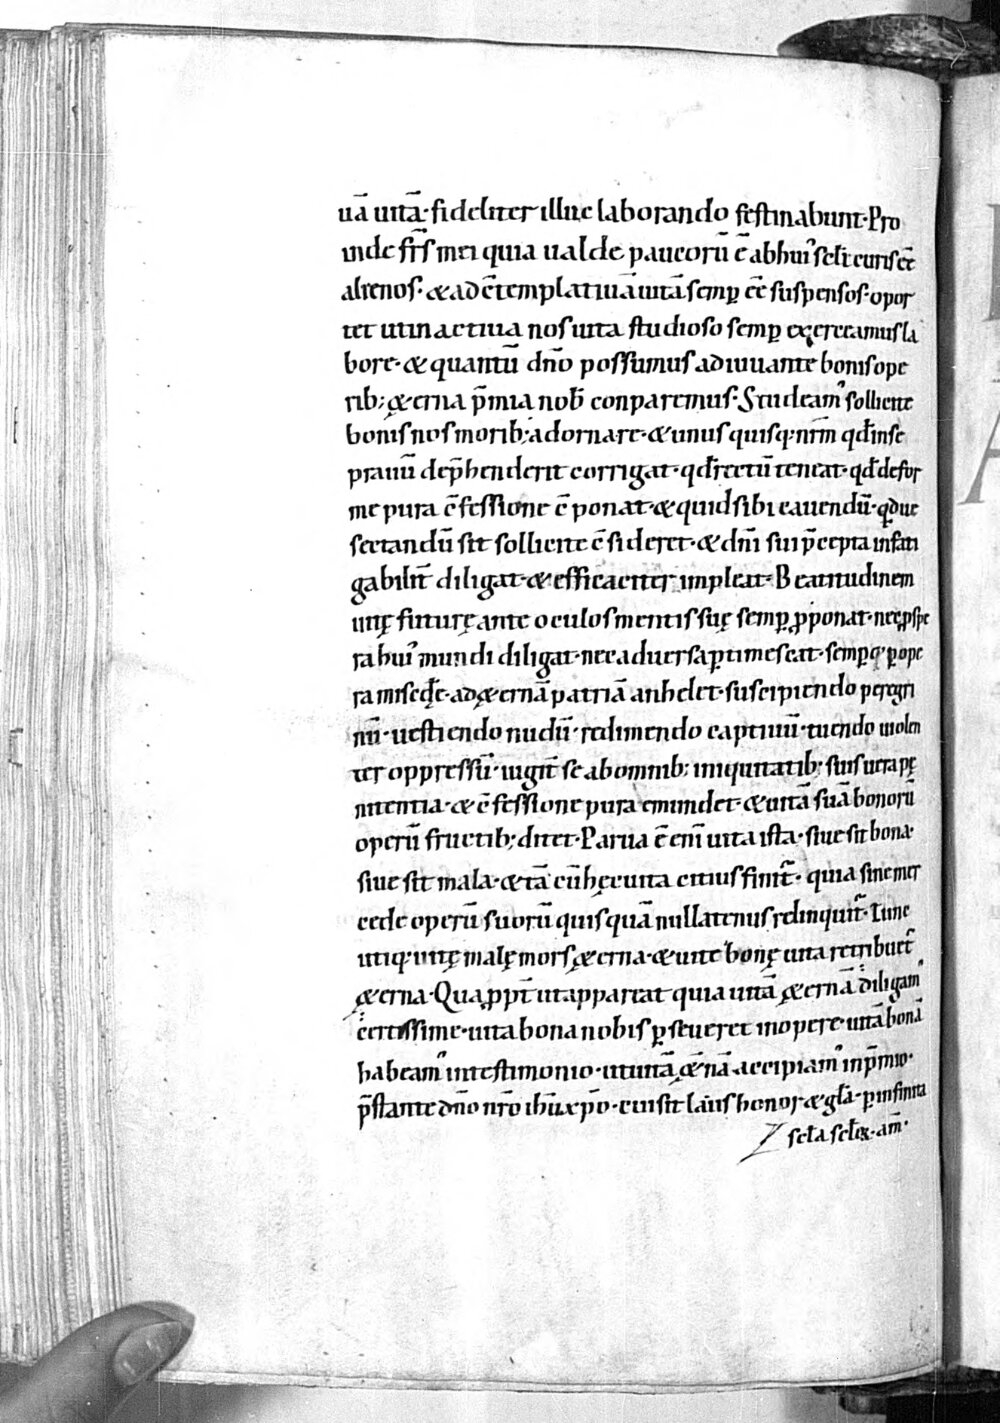 uā uitā· fideliter illuc laborando festinabunt· Pro
inde fr̄s mei quia ualde paucorū ē ab hui᾽ sclī curis eē
alienos· & ad c̄templatiuā uitā semp̱ eē suspensos· opor
tet ut in actiua nos uita studioso semp̱ exerceamus la
bore· & quantū dn̄o possumus adiuuante bonis ope
rib; & ęterna p̄mia nob̄ conparemus· Studeam᾽ sollicite
bonis nos morib; adornare· & unus quisq; nrm̄ qd̄ in se
prauū dep̄henderit corrigat· qd̄ rectū teneat· qd̄ defor
me pura c̄fessione c̄ponat· & quid sibi cauendū· qd̄ue
sectandū sit sollicite c̄sideret· & dn̄i sui p̄cepta infati
gabilit̄ diligat· & efficaciter impleat· Beatitudinem
uitę futurę ante oculos mentis suę semp̱ p̱ponat· nec p̱spe
ra hui᾽ mundi diligat· nec aduersa p̱timescat· semp̱q; p̱ ope
ra mis̄cdię ad ęternā patriā anhelet· suscipiendo peregri
nū· uestiendo nudū· redimendo captiuū· tuendo uiolen
ter oppressū· iugit̄ se ab omnib; iniquitatib; suis uera pę
nitentia· & c̄fessione pura emundet· & uitā suā bonorū
operū fructib; ditet· Parua ē eni̅ uita ista· siue sit bona·
siue sit mala· & tā cū hęc uita citius finit᷑· quia sine mer
cede operū suorū quisquā nullatenus relinquit᷑· Tunc
utiq; uitę malę mors ęterna· & uite bonę uita retribuet᷑
ęterna· Qua p̱p̱t̄ ut appareat quia uitā ęternā diligam᾽
certissime· uita bona nobis p̱seueret in opere· uitā bonā
habeam᾽ in testimonio· ut uitā ęt̄nā accipiam᾽ in p̄mio·
p̄stante dn̄o nr̄o ihū xp̄o· cui sit laus honor & glā· p̱ infinita
scl̄a scl̄oꝝ· am̄·